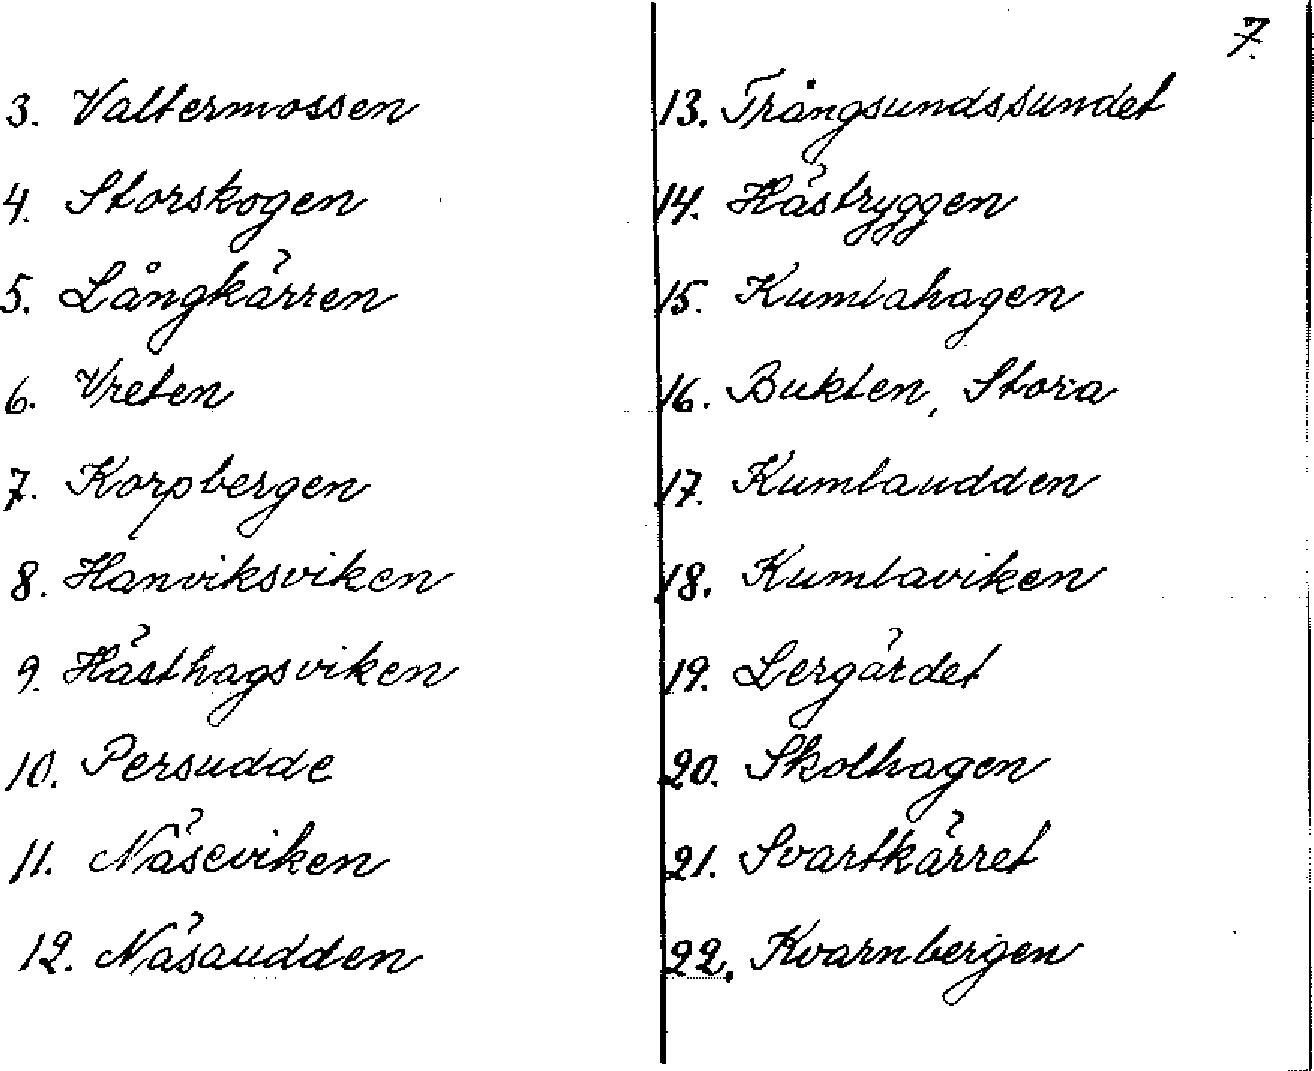 7.
3. Valtermossen
4. Storskogen
5. Långkärren
6. Vreten
7. Korpbergen
8. Hanviksviken
9. Hästhagsviken
10. Persudde
11. Näseviken
12. Näsaudden
13. Trångsundssundet
14. Hästryggen
15. Kumlahagen
16. Bukten, Stora
17. Kumlaudden
18. Kumlaviken
19. Lergärdet
20. Skolhagen
21. Svartkärret
22. Kvarnbergen